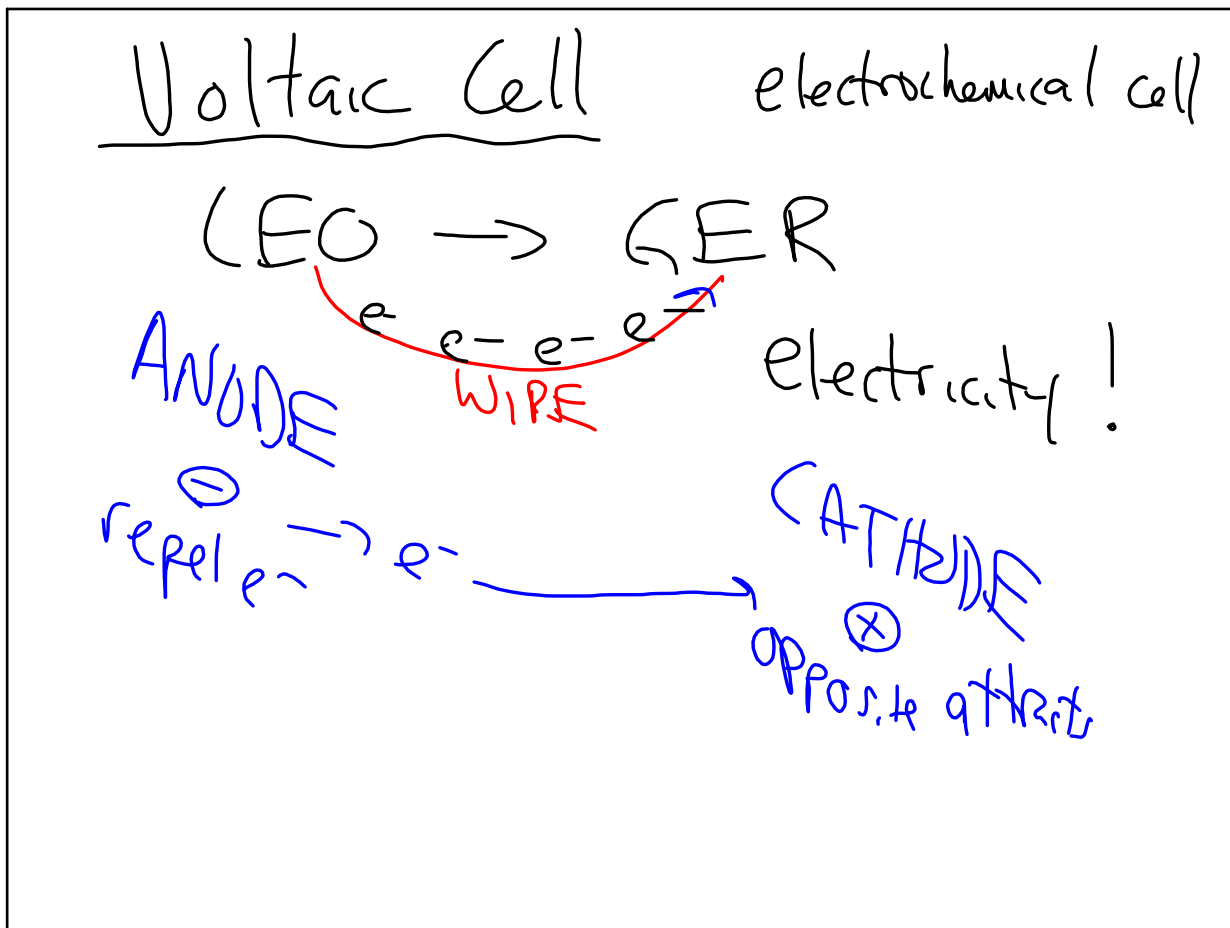 Voltaic Cell
electrochemical cell
LEO → GER
e- e- e- e-
WIRE
electricity!
ANODE
−
repel e- → e-
CATHODE
+
opposite attracts